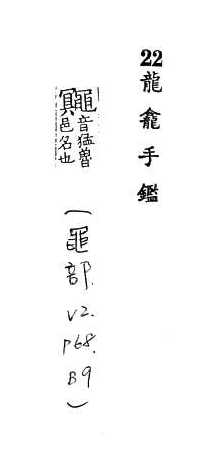 22 龍龕手鑑
鼆
音猛魯
邑名也
(黽部. V2. P68. B9)